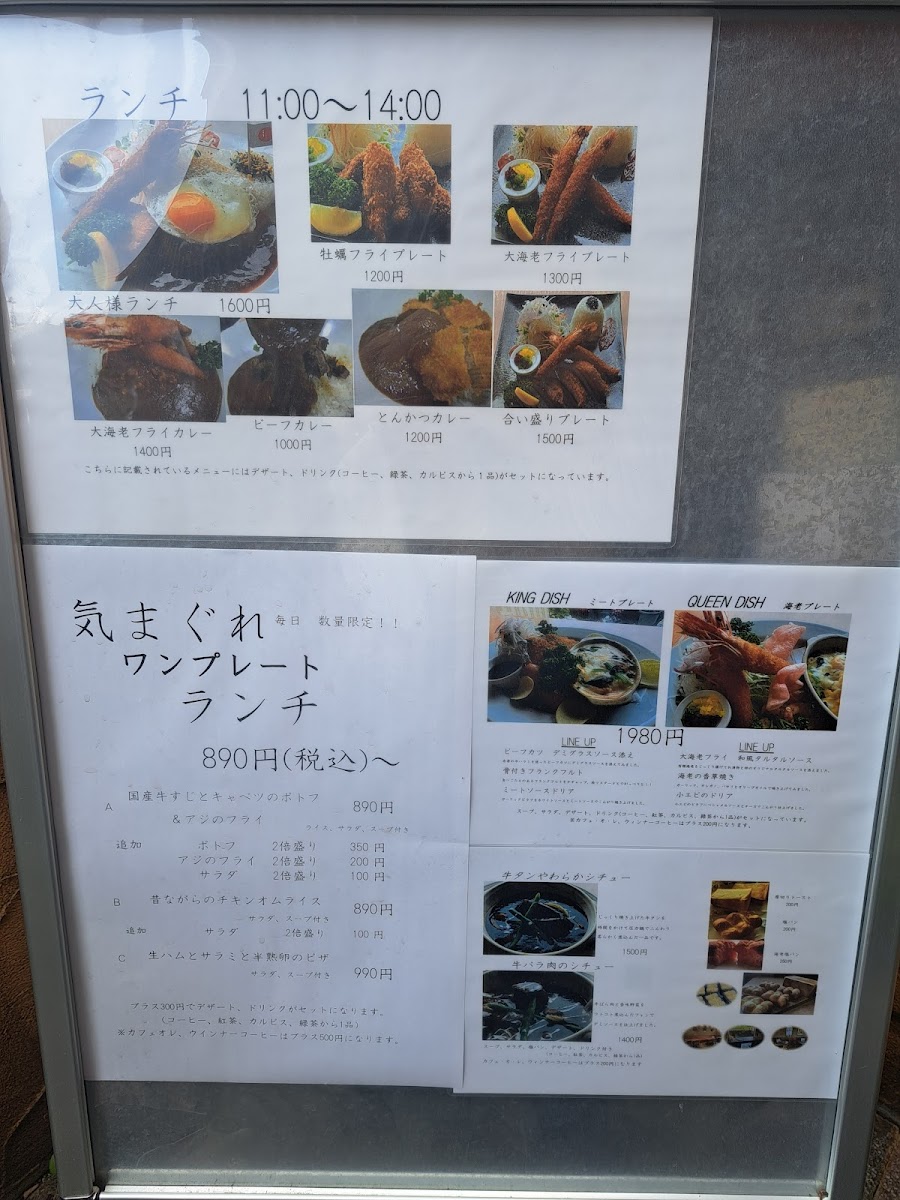 ランチ 11:00～14:00
牡蠣フライプレート
1200円
大海老フライプレート
1300円
大人様ランチ 1600円
大海老フライカレー
1400円
ビーフカレー
1000円
とんかつカレー
1200円
合い盛りプレート
1500円
こちらに記載されているメニューにはデザート、ドリンク(コーヒー、緑茶、カルピスから1品)がセットになっています。
気まぐれ 毎日 数量限定!!
ワンプレート
ランチ
890円(税込)～
A 国産牛すじとキャベツのポトフ
&アジのフライ 890円
ライス、サラダ、スープ付き
追加 ポトフ 2倍盛り 350円
アジのフライ 2倍盛り 200円
サラダ 2倍盛り 100円
B 昔ながらのチキンオムライス 890円
サラダ、スープ付き
追加 サラダ 2倍盛り 100円
C 生ハムとサラミと半熟卵のピザ
サラダ、スープ付き 990円
プラス300円でデザート、ドリンクがセットになります。
(コーヒー、紅茶、カルピス、緑茶から1品)
※カフェオレ、ウインナーコーヒーはプラス500円になります。
KING DISH ミートプレート
QUEEN DISH 海老プレート
1980円
LINE UP
ビーフカツ デミグラスソース添え
骨付きフランクフルト
ミートソースドリア
LINE UP
大海老フライ 和風タルタルソース
海老の香草焼き
小エビのドリア
スープ、サラダ、デザート、ドリンク(コーヒー、紅茶、カルピス、緑茶から1品)がセットになっています。
※カフェ・オ・レ、ウィンナーコーヒーはプラス200円になります。
牛タンやわらかシチュー
1500円
牛バラ肉のシチュー
1400円
スープ、サラダ、塩パン、デザート、ドリンク付き
カフェ・オ・レ、ウィンナーコーヒーはプラス200円になります